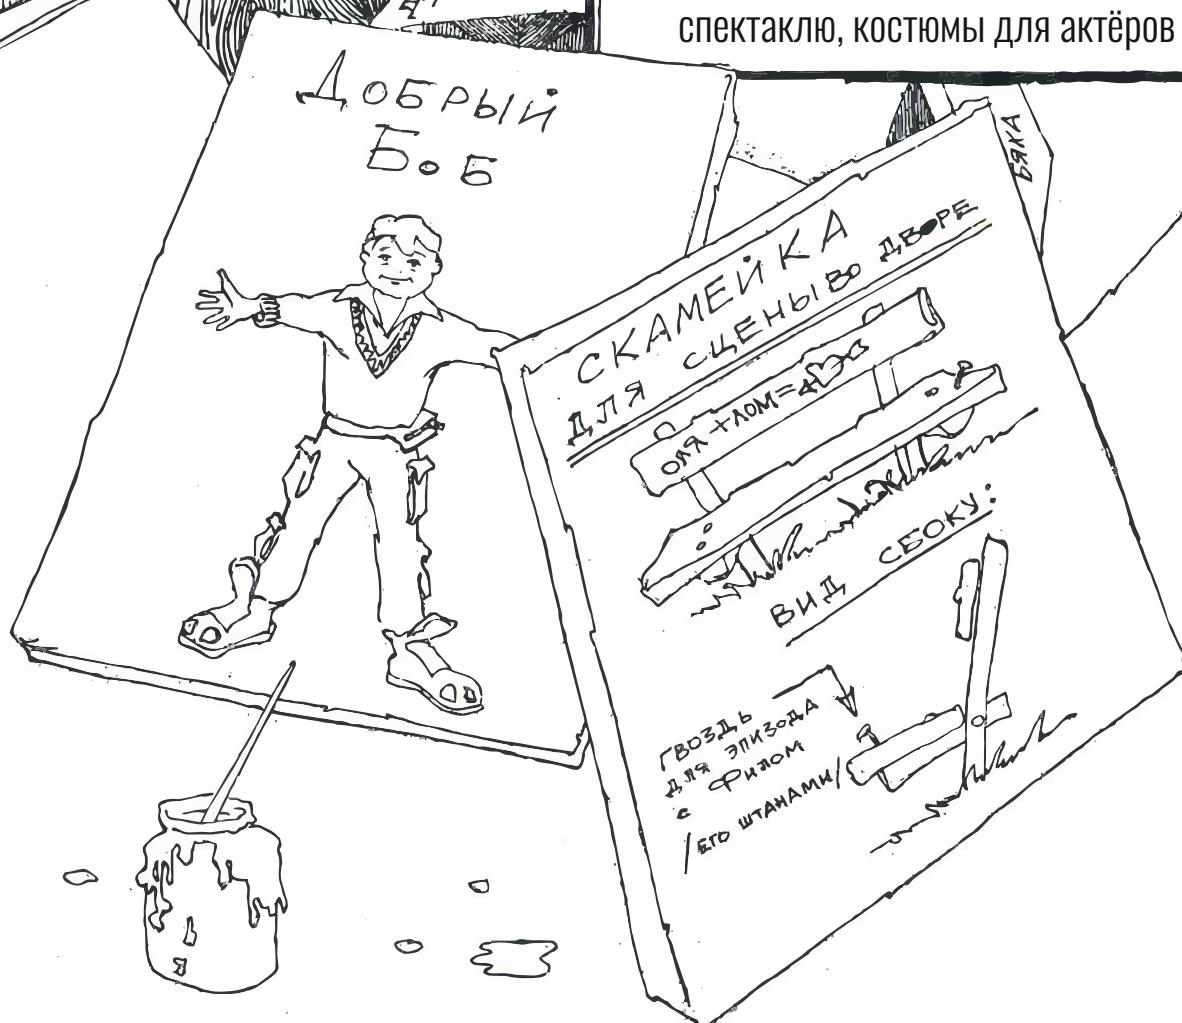 спектаклю, костюмы для актёров
ДОБРЫЙ
Б. Б
БЯКА
СКАМЕЙКА
ДЛЯ СЦЕНЫ ВО ДВОРЕ
ОЛЯ + ЛОМ =
ВИД СБОКУ:
ГВОЗДЬ
ДЛЯ ЭПИЗОДА
С ФИЛОМ
/ЕГО ШТАНАМИ/